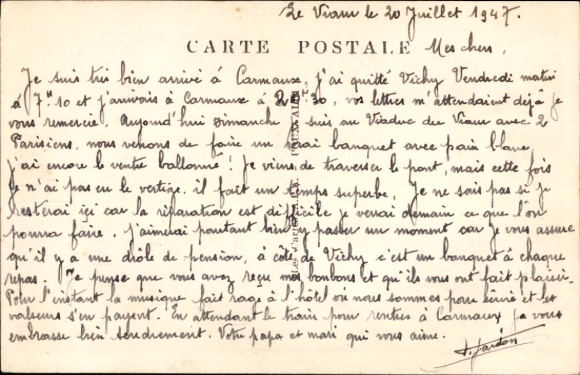 Le Viaur le 20 Juillet 1947.
CARTE POSTALE Mes chers,
Je suis très bien arrivé à Carmaux, j'ai quitté Vichy Vendredi matin
à 7h 10 et j'arrivais à Carmaux à 2 30, vos lettres m'attendaient déjà je
vous remercie. Aujourd'hui Dimanche je suis au Viaduc du Viaur avec 2
Parisiens, nous venons de faire un vrai banquet avec pain blanc
j'ai encore le ventre ballonné! Je viens de traverser le pont, mais cette fois
je n'ai pas eu le vertige, il fait un temps superbe. Je ne sais pas si je
resterai içi car la réparation est difficile je verrai demain ce que l'on
pourra faire, j'aimerai pourtant bien y passer un moment car je vous assure
qu'il y a une drôle de pension, à côté de Vichy c'est un banquet à chaque
repas. Je pense que vous avez reçu mes bonbons et qu'ils vous ont fait plaisir.
Pour l'instant la musique fait rage à l'hôtel où nous sommes pour servir et les
valseurs s'en payent. En attendant le train pour rentrer à Carmaux je vous
embrasse bien tendrement. Votre papa et mari qui vous aime.